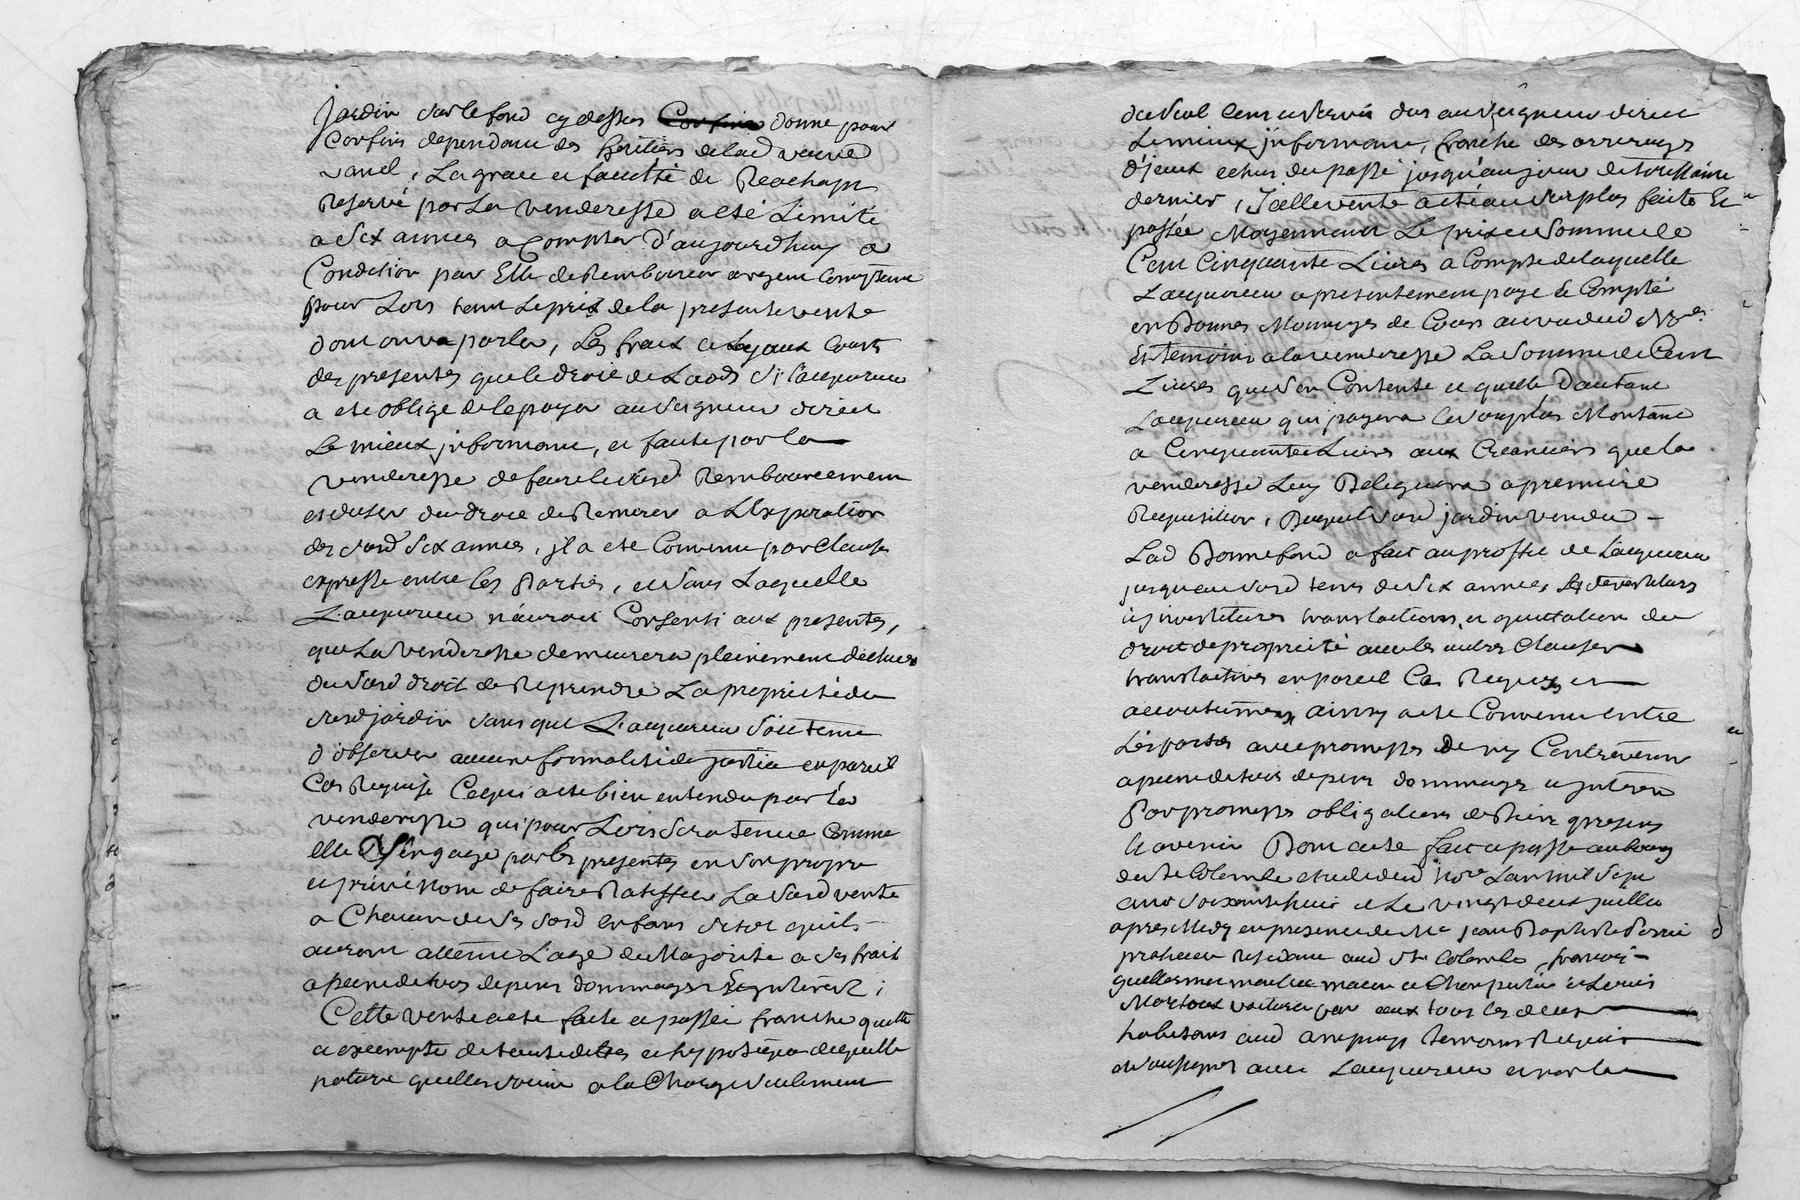 jardin sur le fond cy dessus donné pour
Confins dependant des heritiers de lad veuve
la grace et faculté de Reachapt
Reservé par la venderesse a eté Limité
a Six années a Compter d'aujourdhuy a
Condition par Elle de Rembourcer argent Comptant
pour Lors tant Le prix de la presente vente
dont on va parler, Les fraix et loyaux Couts
des presentes que le droit de Laods Si l'acquereur
a eté obligé de le payer au Seigneur direct
Le mieux jnformant, et faute par la
venderesse de faire led Rembourcement
et duser du droit de Remerer a L'Expiration
des Susd Six années, jl a eté Convenu par Clause
expresse entre les Parties, et Sans Laquelle
L'acquereur n'auroit Consenti aux presentes,
que La venderesse demeurera pleinement dechue
du Susd droit de Reprendre La proprieté du
Susd jardin Sans que L'acquereur Soit tenu
d'observer aucune formalité de justice en pareil
Cas Requise Ce qui a eté bien entendu par la
venderesse qui pour Lors Sera tenue Comme
elle S'engage par les presentes en Son propre
et privé nom de faire Ratiffier La Susd vente
a Chacun de Ses Susd enfans Sitot quils
auront atteint L'age de Majorité a Ses frais
a peine de tous depens dommages & jnterets ;
Cette vente a eté faite et passée franche quitte
et exempte de toute dettes et hypoteques de quelle
nature quelles Soient a la Charge Seulement
du Seul Cens et Servis dus au Seigneur direct
Le mieux jnformant, franche des arrerages
d'jceux echus du passé jusqu'au jour de toussaint
dernier, Jcelle vente a eté au Surplus faite Et
passée Moyennant Le prix et Somme de
Cent Cinquante Livres a Compte de laquelle
L'acquereur a presentement payé & Compté
en Bonnes Monnoyes de Cours au vu dud No.re
& temoins a la venderesse La Somme de Cent
Livres que S'en Contente et quitte D'autant
L'acquereur qui payera le Surplus Montant
a Cinquante Livres aux Creanciers que la
venderesse Luy Deleguera a premiere
Requisition, Duquel Susd jardin vendu
Lad Bonnefond a fait au proffit de L'acquereur
jusqu'au Susd tems de Six années, Les devestitures
investitures translations et quittation du
droit de proprieté avec les autres Clauses
translatives en pareil Cas Requises et
accoutumées, ainsy a eté Convenu entre
Les parties avec promesses de n'y Contrevenir
a peine de tous depens dommages et jnterets
Par promesses obligations de Biens presens
& avenir Dont acte fait et passé au bourg
de Ste Colombe etude dud No.re L'an mil Sept
cent Soixante huit et Le vingt deux juillet
apres Midy en presence de Me jean Baptiste
praticien Residant aud Ste Colombe, françois
guillermet maitre macon et Charpentier & Louis
voiturier par eaux tous les deux
habitans aud temoins Requis
et Soussignés avec L'acquereur et non la